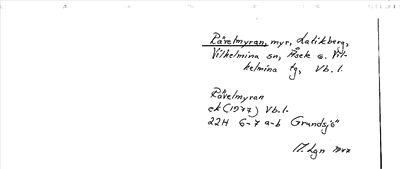 Rävelmyran, myr, Latikberg,
Vilhelmina sn, Åsele o. Vil-
helmina tg, Vb.l.
Rävelmyran
ek (1977) Vb.l.
22H 6-7 a-b Grundsjö